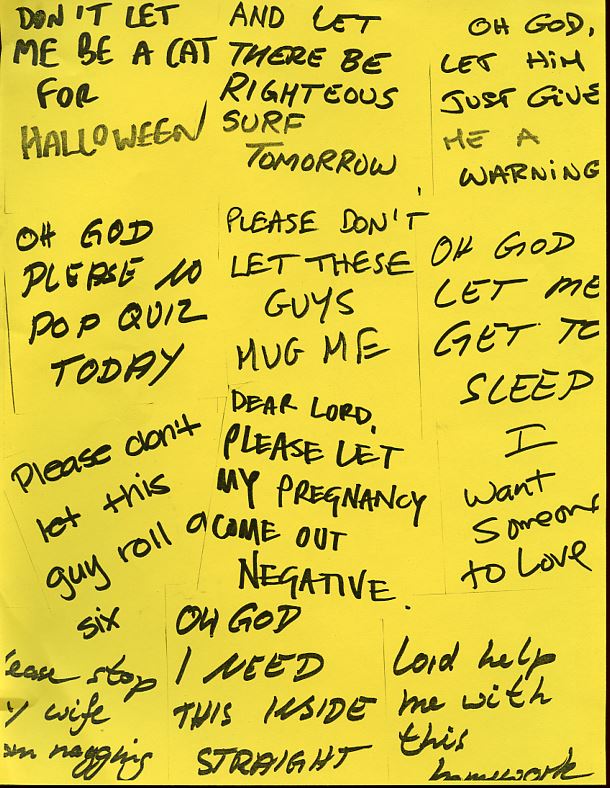 DON'T LET
ME BE A CAT
FOR
HALLOWEEN
AND LET
THERE BE
RIGHTEOUS
SURF
TOMORROW
OH GOD,
LET HIM
JUST GIVE
ME A
WARNING
OH GOD
PLEASE NO
POP QUIZ
TODAY
PLEASE DON'T
LET THESE
GUYS
MUG ME
OH GOD
LET ME
GET TO
SLEEP
Please don't
let this
guy roll a
six
DEAR LORD,
PLEASE LET
MY PREGNANCY
COME OUT
NEGATIVE.
I
want
someone
to Love
ease stop
y wife
om nagging
OH GOD
I NEED
THIS INSIDE
STRAIGHT
Lord help
me with
this
homework